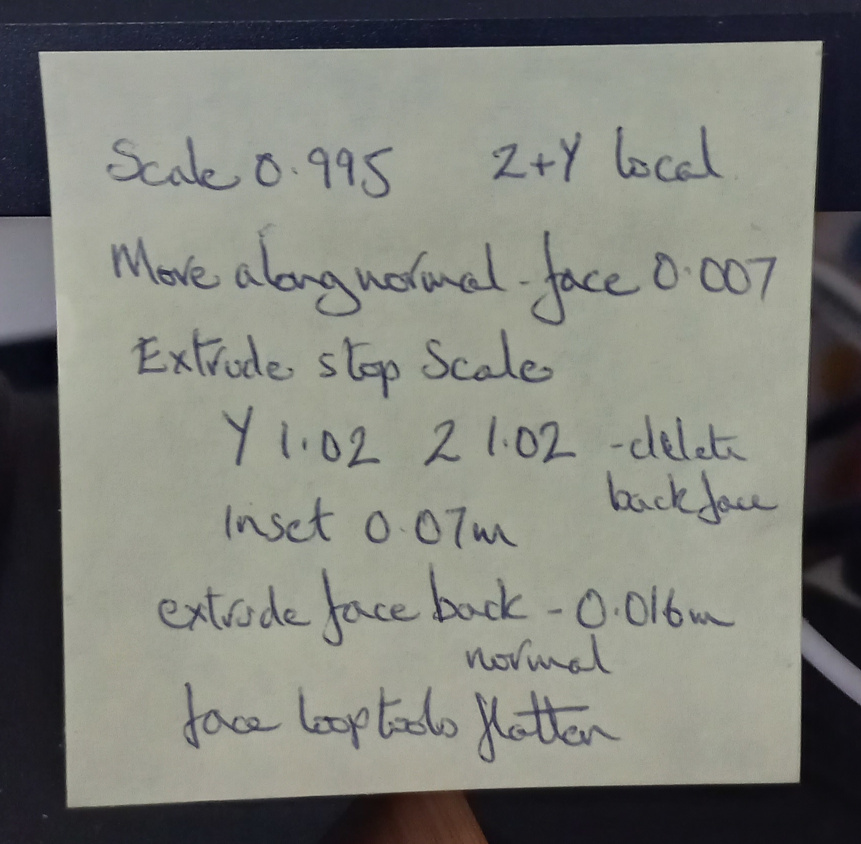 Scale 0.995 Z+Y local
Move along normal - face 0.007
Extrude stop Scale
Y 1.02 Z 1.02 - delete
backface
Inset 0.07m
extrude face back - 0.016m
normal
face looptools flatten